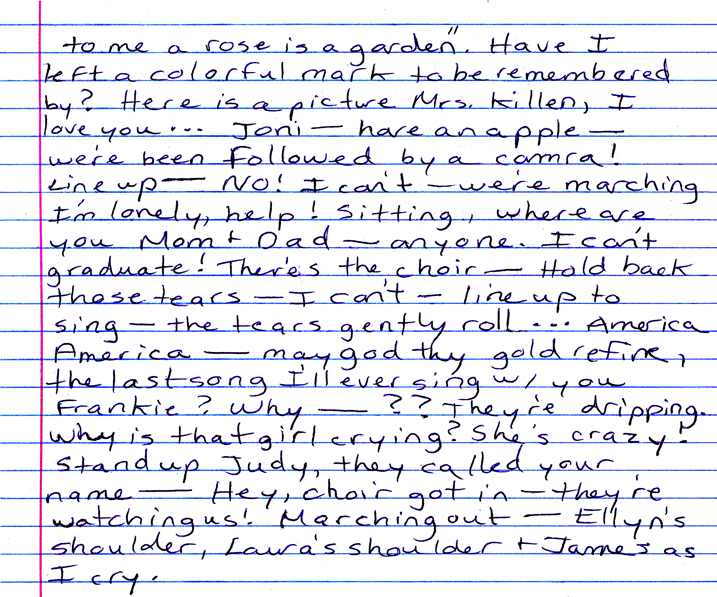 to me a rose is a garden". Have I
left a colorful mark to be remembered
by? Here is a picture Mrs. Killen, I
love you... Joni — have an apple —
we're been followed by a camra!
Line up — NO! I can't — we're marching
I'm lonely, help! Sitting, where are
you Mom + Dad — anyone. I can't
graduate! There's the choir — Hold back
those tears — I can't — line up to
sing — the tears gently roll... America
America — may god thy gold refine,
the last song I'll ever sing w/ you
Frankie? Why — ?? They're dripping.
Why is that girl crying? She's crazy!
Stand up Judy, they called your
name — Hey, choir got in — they're
watching us! Marching out — Ellyn's
shoulder, Laura's shoulder + James as
I cry.